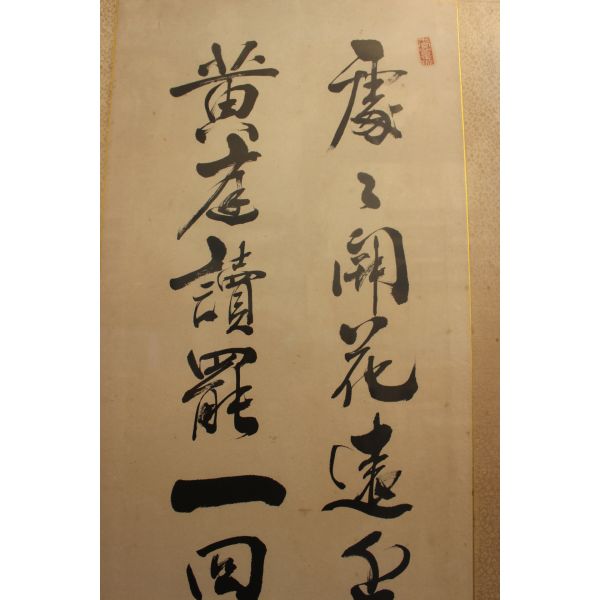 處々開花遶
黄庭讀罷一回